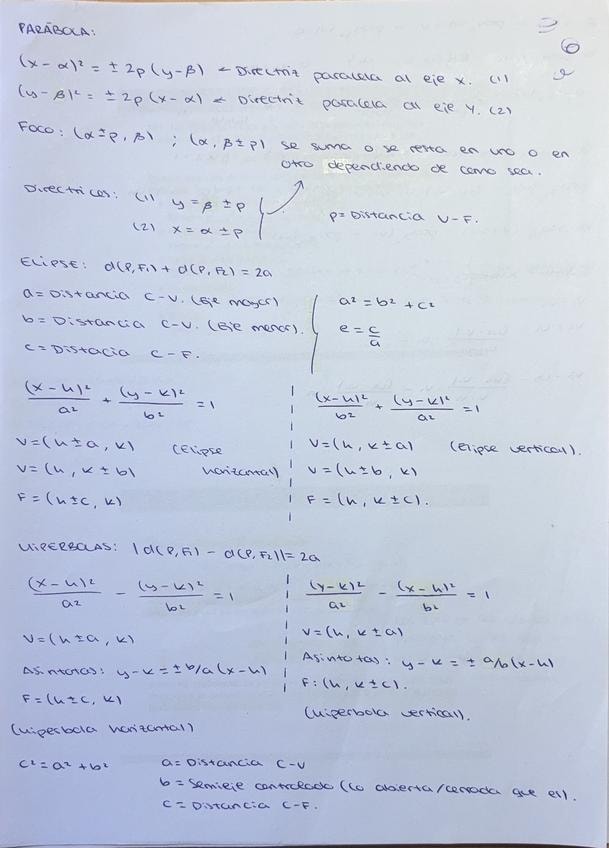 PARÁBOLA:
(x-α)² = ± 2p (y-β) ← Directriz paralela al eje x. (1)
(y-β)² = ± 2p (x-α) ← Directriz paralela al eje y. (2)
Foco: (α±p, β) ; (α, β±p) se suma o se resta en uno o en
otro dependiendo de como sea.
Directrices: (1) y = β ± p
(2) x = α ± p
p = Distancia V-F.
ELIPSE: d(P,F₁) + d(P,F₂) = 2a
a = Distancia C-V. (Eje mayor)
b = Distancia C-V. (Eje menor).
c = Distacia C-F.
a² = b² + c²
e = c/a
(x-h)²/a² + (y-k)²/b² = 1
V = (h±a, k) (Elipse
V = (h, k±b) horizontal)
F = (h±c, k)
(x-h)²/b² + (y-k)²/a² = 1
V = (h, k±a) (Elipse vertical).
V = (h±b, k)
F = (h, k±c).
HIPÉRBOLAS: |d(P,F₁) - d(P,F₂)| = 2a
(x-h)²/a² - (y-k)²/b² = 1
V = (h±a, k)
Asíntotas: y-k = ± b/a (x-h)
F = (h±c, k)
(Hipérbola horizontal)
(y-k)²/a² - (x-h)²/b² = 1
V = (h, k±a)
Asíntotas: y-k = ± a/b (x-h)
F: (h, k±c).
(Hipérbola vertical).
c² = a² + b²
a = Distancia C-V
b = Semieje (lo abierta/cerrada que es).
c = Distancia C-F.